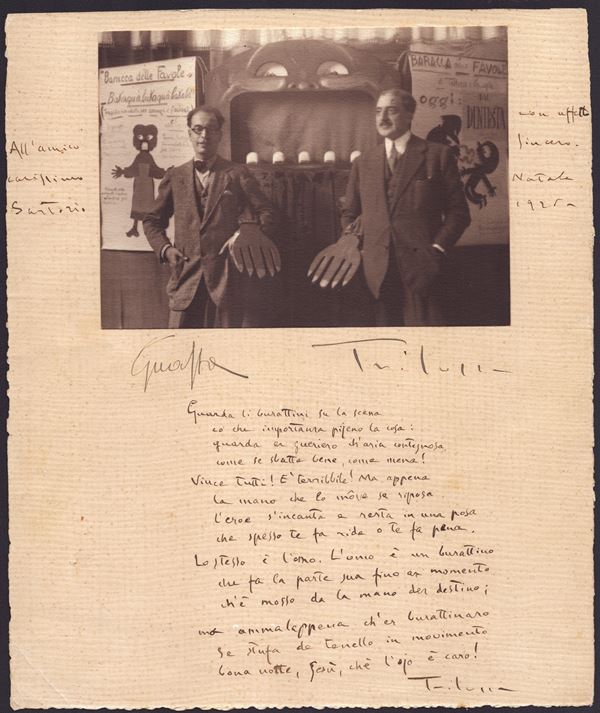 "Baracca delle Favole"
BARACCA delle FAVOLE
oggi:
DENTISTA
All'amico
carissimo
Sartorio
con affetto
sincero.
Natale
Guasta
Trilussa
Guarda li burattini su la scena
co' che importanza pijeno la cosa:
guarda er gueriero d'aria contegnosa
come se sbatte bene, come mena!
Vince tutti! E' terribbile! Ma appena
la mano che lo môve se riposa
l'eroe s'incanta e resta in una posa
che spesso te fa ride o te fa pena.
Lo stesso è l'omo. L'omo è un burattino
che fa la parte sua fino ar momento
ch'è mosso da la mano der destino;
ma ammalappena ch'er burattinaro
se stufa de tenello in movimento
bona notte, Gesù, chè l'ojo è caro!
Trilussa